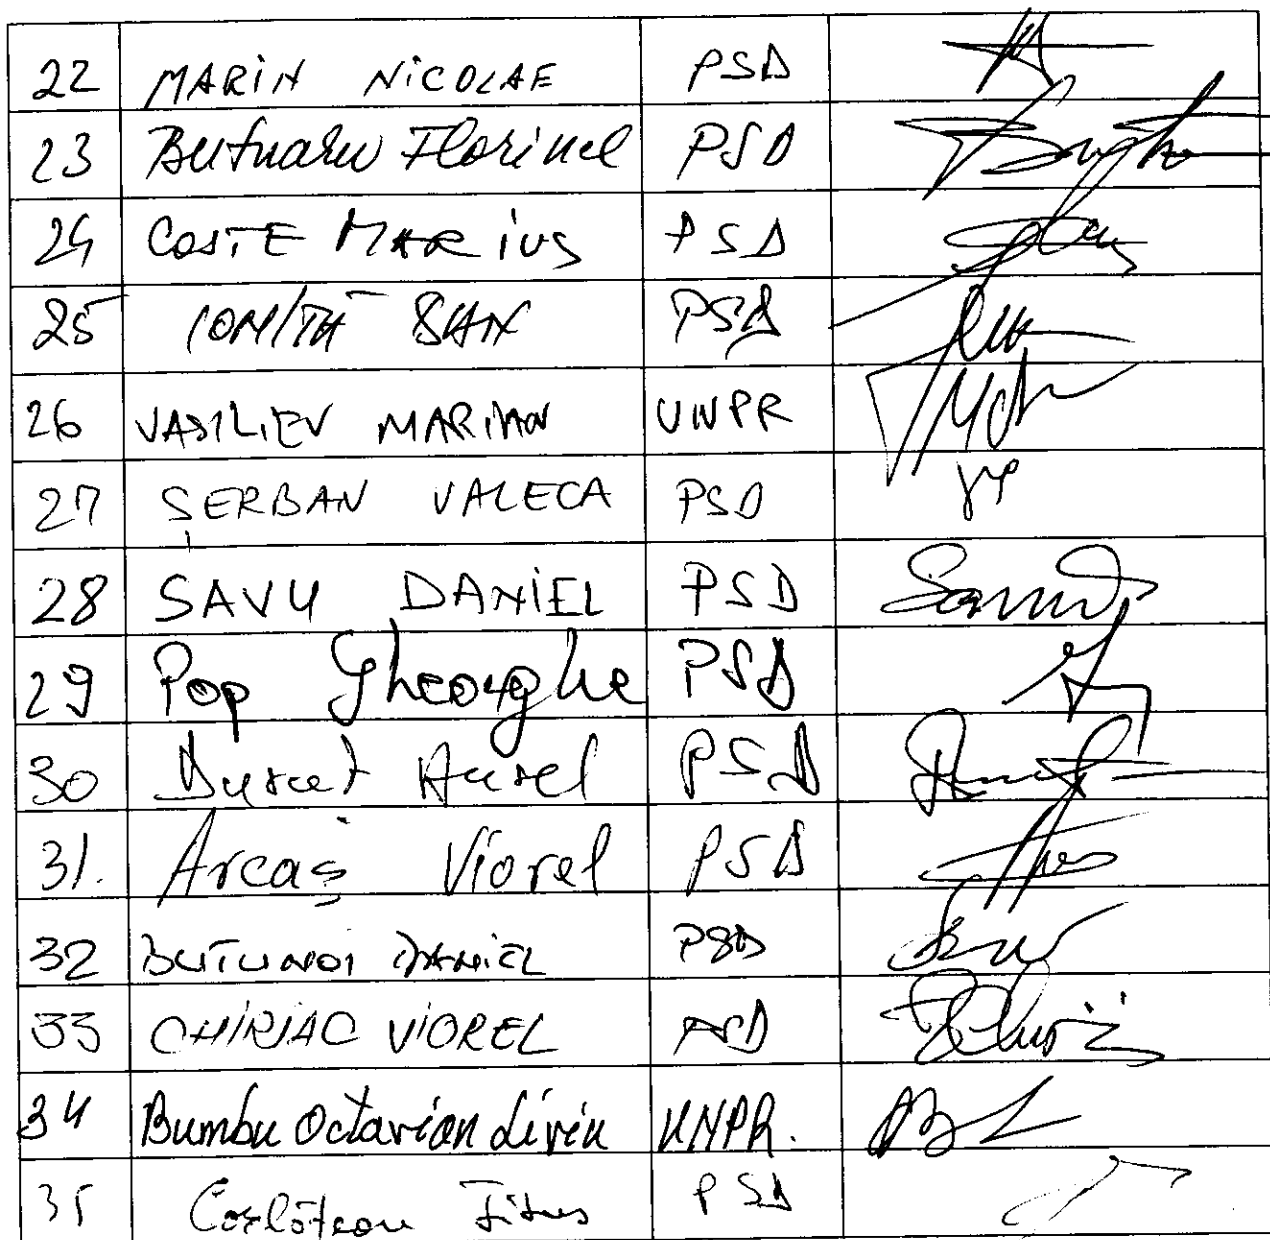 22 MARIN NiCOLAE PSD
23 Butnaru Florinel PSD
24 COSTE MARIUS PSD
25 IONIȚĂ DAN PSD
26 VASILIEV MARIAN UNPR
27 ȘERBAN VALECA PSD
28 SAVU DANiEL PSD
29 Pop Gheorghe PSD
30 Duruț Aurel PSD
31. Arcaș Viorel PSD
32 BUTUNOI DANIEL PSD
33 CHIRIAC VIOREL PSD
34 Bumbu Octavian Liviu UNPR.
35 Corlățean Titus PSD